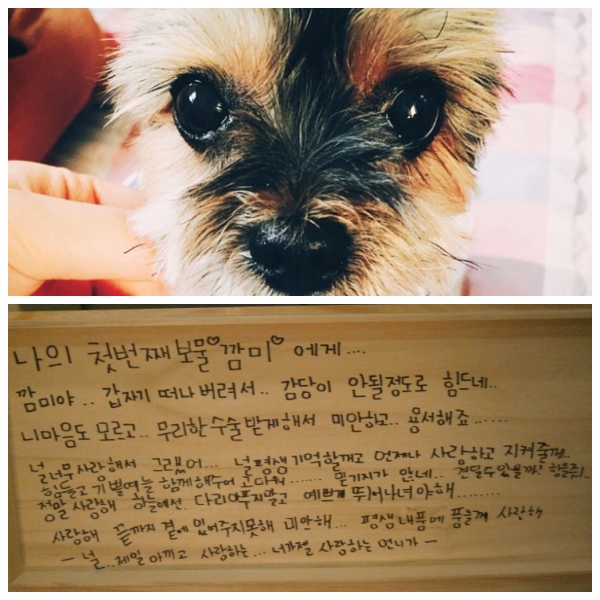 나의 첫번째 보물♡깜미♡에게....
깜미야.. 갑자기 떠나버려서.. 감당이 안될정도로 힘드네..
니마음도 모르고.. 무리한수술받게해서 미안하고.. 용서해죠......
널너무사랑해서 그랬어... 널평생기억할께고 언제나 사랑하고 지켜줄께..
힘들고 기쁠때늘 함께해주어 고마워....... 믿기지가 않네.. 견딜수있을까?
정말 사랑해 하늘에선.. 다리아푸지말고 예쁘게 뛰어다녀야해........
사랑해 끝까지 곁에 있어주지못해 미안해... 평생내품에 품을께 사랑해
- 널.. 제일아끼고 사랑하는... 너가젤 사랑하는 언니가 -